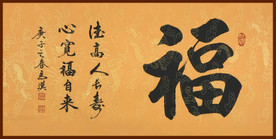 福
德高人长寿
心寬福自来
庚子之春